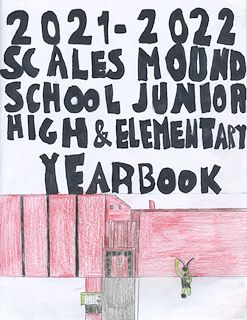 2021-2022
SCALES MOUND
SCHOOL JUNIOR
HIGH & ELEMENTARY
YEARBOOK